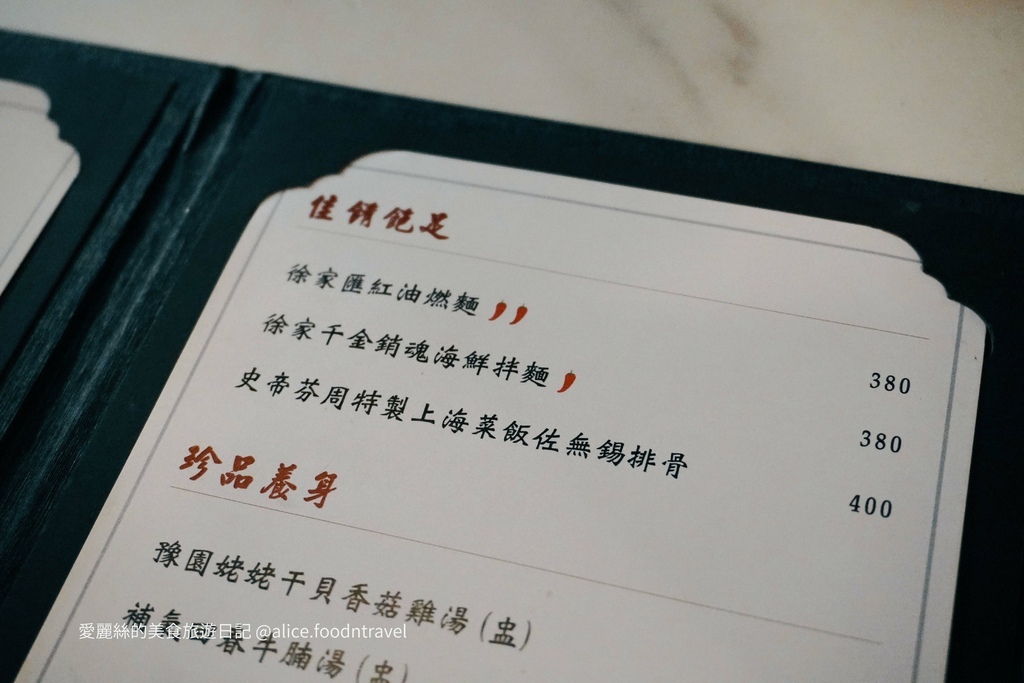 佳餚飽足
徐家匯紅油燃麵
380
徐家千金銷魂海鮮拌麵
380
史帝芬周特製上海菜飯佐無錫排骨
400
珍品養身
豫園姥姥干貝香菇雞湯(盅)
補氣回春羊腩湯(盅)
愛麗絲的美食旅遊日記 @alice.foodntravel